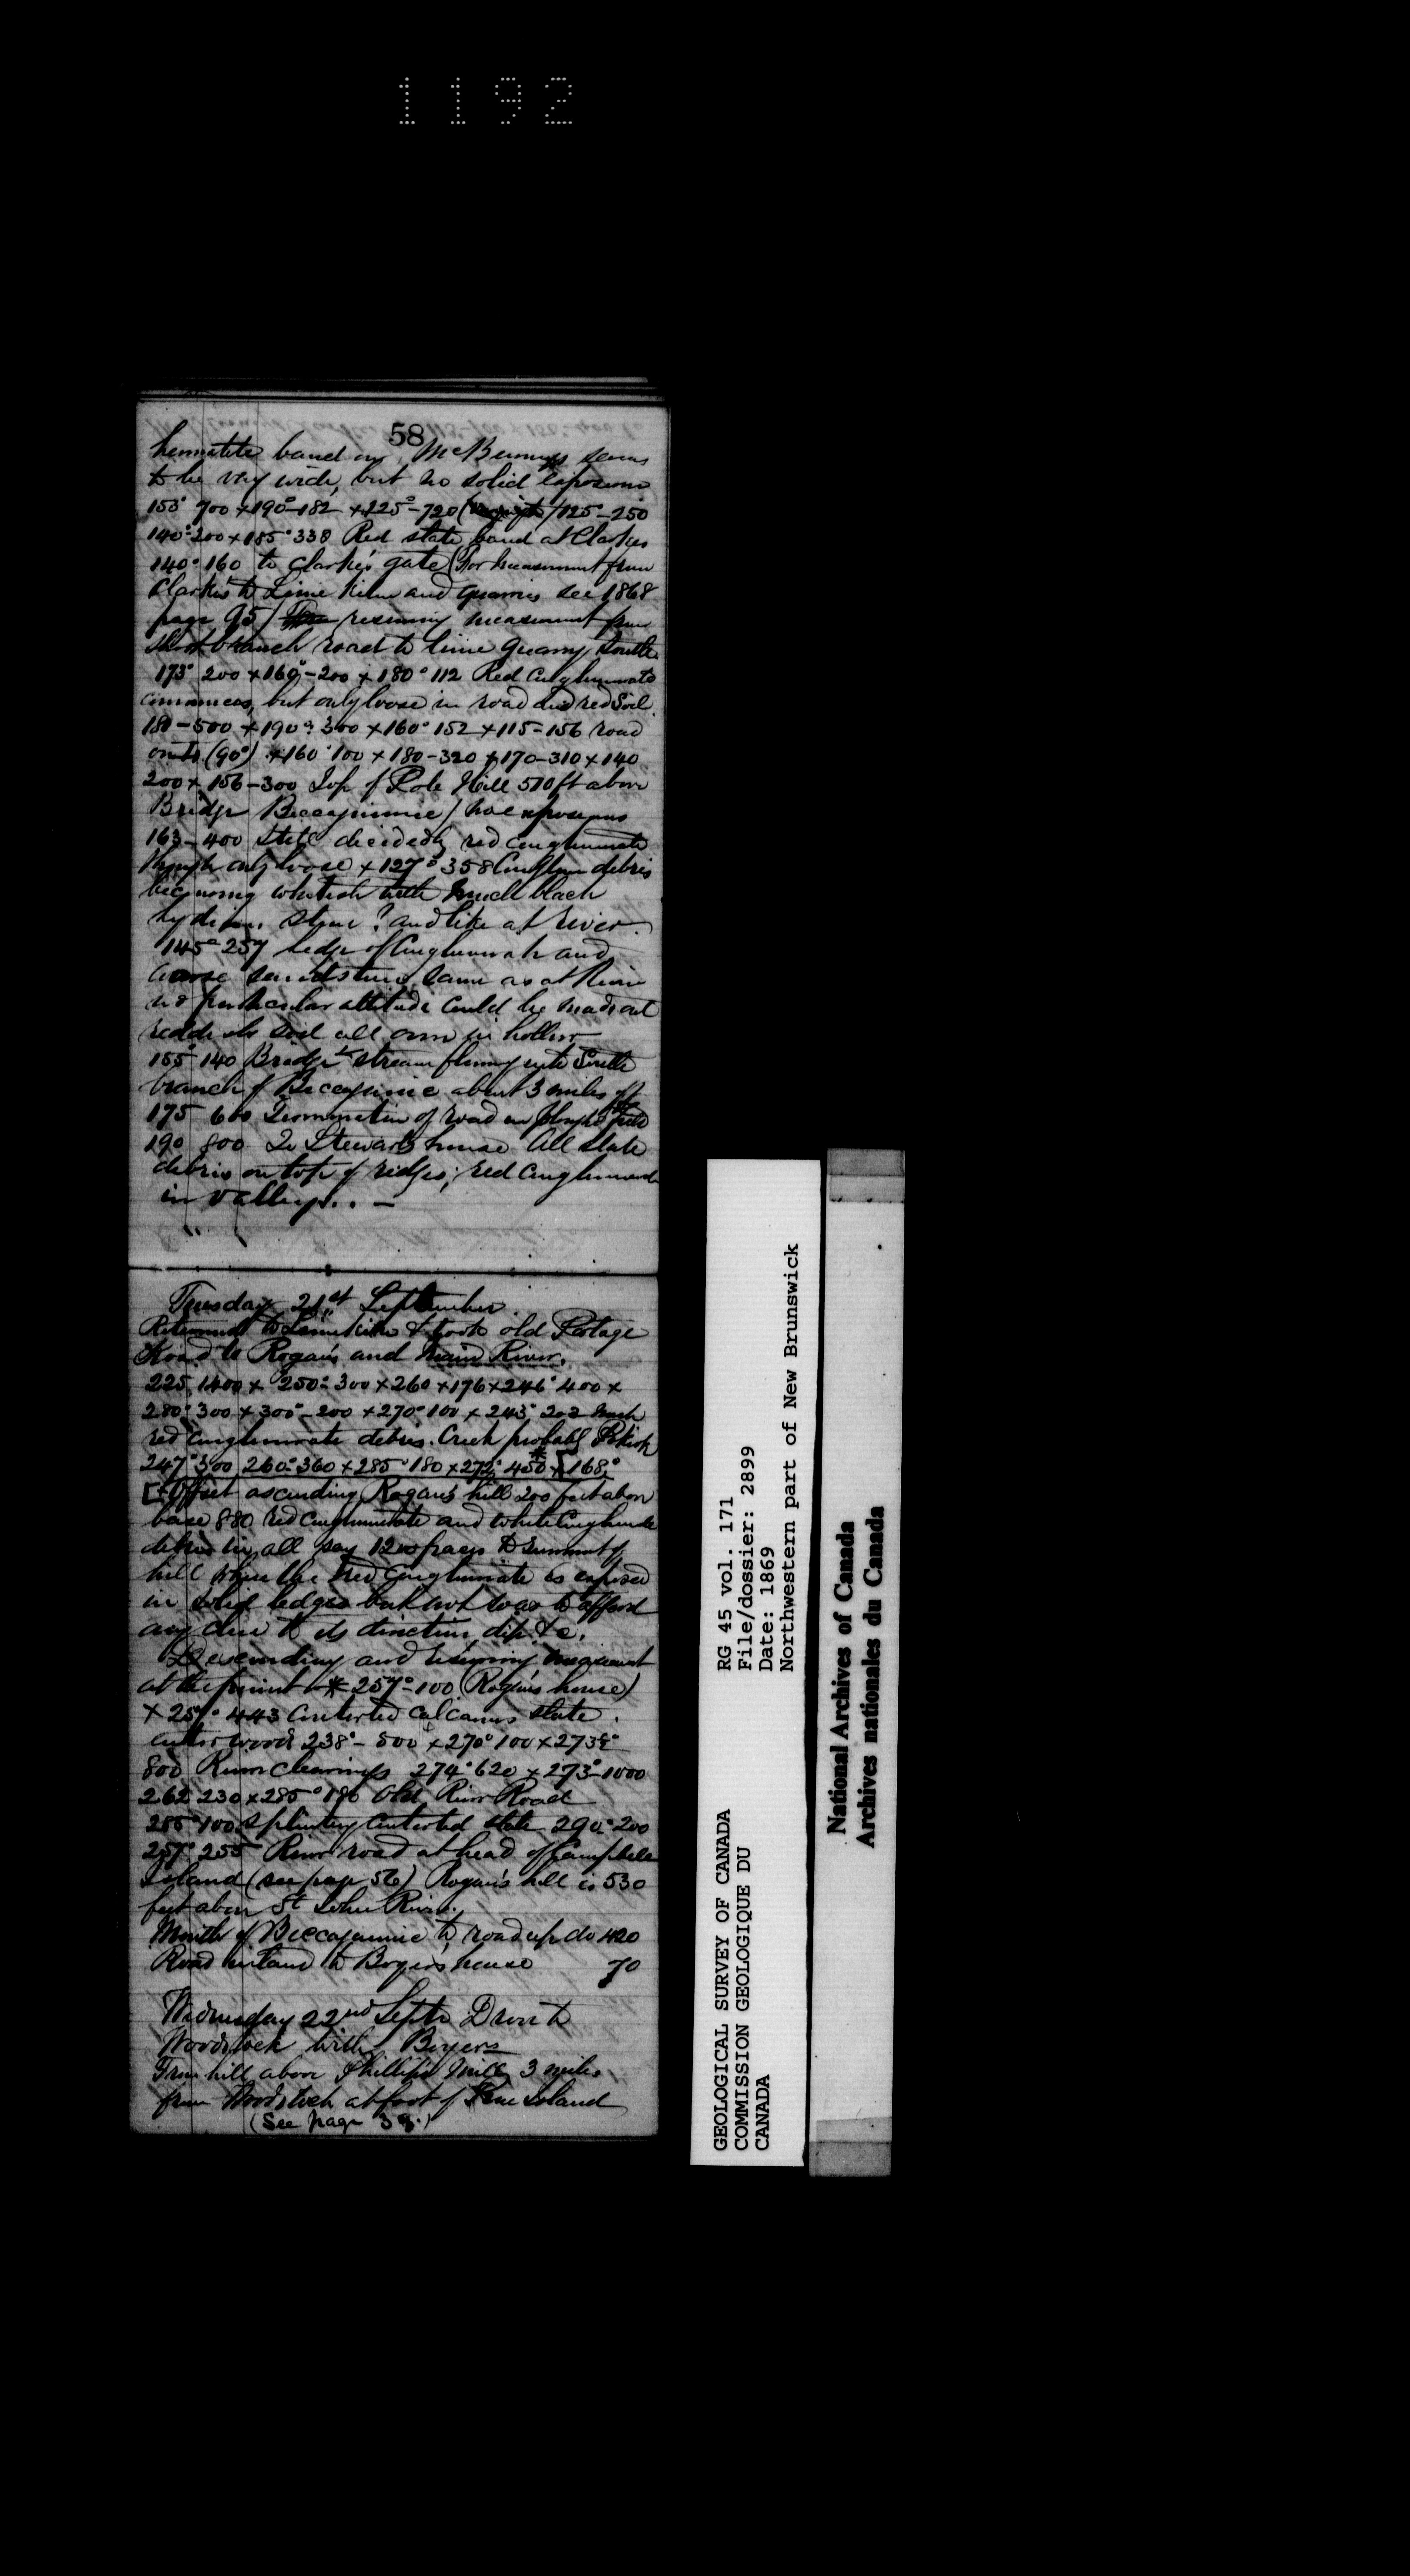 1192
58
hematite band on McBurneys seems
to be very wide, but no solid exposures
155° 700 × 190°-182 × 225°-720 125°-250
140°-200 × 185° 338 Red slate band at Clarkes
140° 160 to Clarke's gate (For measurement from
Clarkes to Lime Kiln and quarries see 1868
page 95) resuming measurement from
branch road to lime quarry South
173° 200 × 160°-200 × 180° 112 Red Conglomerate
but only loose in road and red Soil
180-500 × 190° 300 × 160° 152 × 115-156 road
on to (90°) × 160° 100 × 180-320 × 170-310 × 140
200 × 156-300 Top of Pole Hill 510 ft above
Bridge Beccaguimic / no exposures
163-400 Still decidedly red conglomerate
though only loose × 127° 358 Conglom debris
becoming whitish with much black
stone? and like at river.
145° 257 ledge of Conglomerate and
coarse sandstone same as at River
no particular attitude could be made out
reddish soil all over in hollow
155° 140 Bridge stream flowing into South
branch of Beccaguimic about 3 miles off
175 600 Termination of road in ploughed field
190 800 To Stewarts house All slate
debris on top of ridges; red Conglomerate
in valleys.. —
Tuesday 21st September
Returned to Limekiln & took old Portage
Road to Rogan's and Main River.
225 1400 × 250° 300 × 260 × 176 × 246° 400 ×
280° 300 × 300°-200 × 270° 100 × 243° 202 Much
red conglomerate debris. Creek probably
247° 300 260° 360 × 285° 180 × 272° 450 * × [168°
[Offset ascending Rogan's hill 200 feet above
base 880 red conglomerate and white Conglomerate
debris in all say 1200 paces to summit of
hill where the red conglomerate is exposed
in solid ledges but not so as to afford
any clue to its direction dip &c.
Descending and resuming measurement
at the point * 257°-100 (Rogan's house)
× 257° 443 Contorted calcareous slate.
enter wood 238°-500 × 270° 100 × 273½°
800 River Clearings 274° 620 × 273°-1000
262 230 × 285° 180 Old River Road
285° 100 Splintery contorted slate 290° 200
257° 255 River road at head of Campbells
Island (see page 56) Rogan's hill is 530
feet above St John River.
Mouth of Beccaguimic to road up do 420
Road inland to Boyers house 70
Wednesday 22nd Septr Drove to
Woodstock with Boyers
From hill above Phillips Mill 3 miles
from Woodstock at foot of Island
(See page 38.)
GEOLOGICAL SURVEY OF CANADA
COMMISSION GEOLOGIQUE DU
CANADA
RG 45 vol. 171
File/dossier: 2899
Date: 1869
Northwestern part of New Brunswick
National Archives of Canada
Archives nationales du Canada